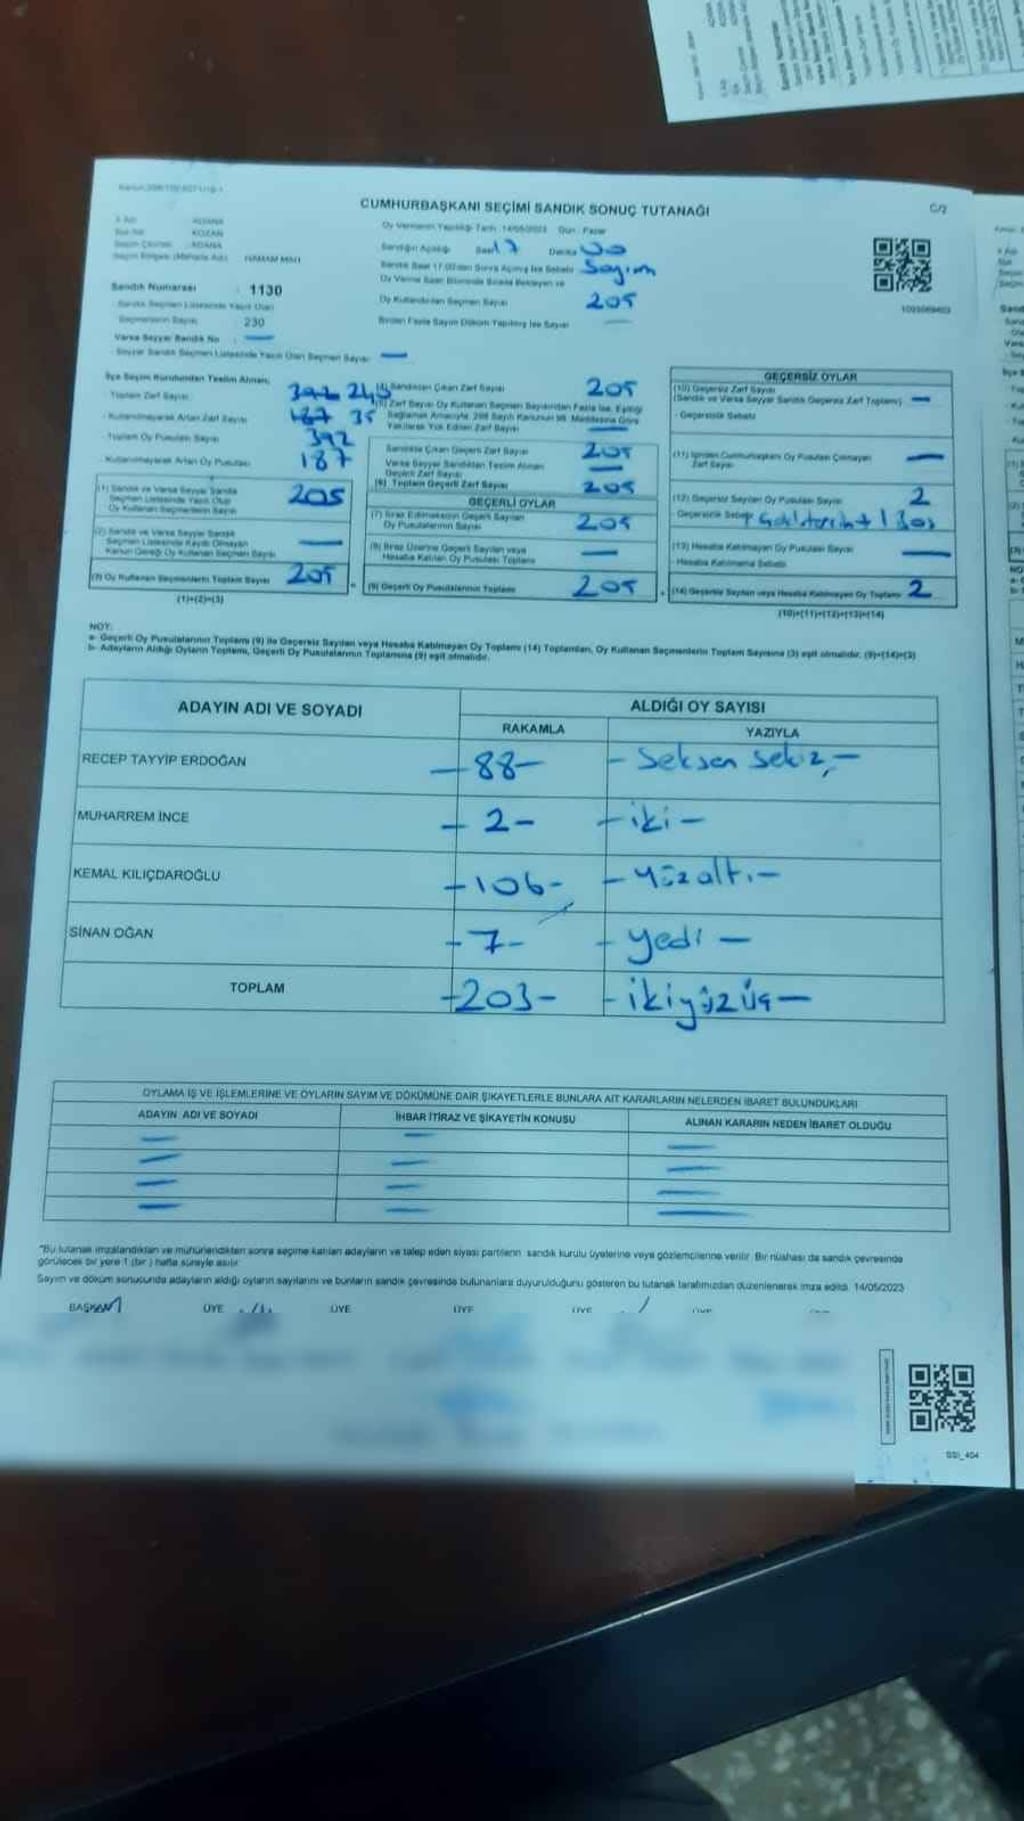 CUMHURBAŞKANI SEÇİMİ SANDIK SONUÇ TUTANAĞI
C/2
Oy Vermenin Yapıldığı Tarih: 14/05/2023 Gün: Pazar
İl Adı ADANA
İlçe Adı KOZAN
Seçim Çevresi ADANA
HAMAM MAH
Sandığın Açıldığı Saat 17 Dakika 00
Sayım
Sandık Numarası : 1130
Oy Kullandırılan Seçmen Sayısı 205
Seçmenlerin Sayısı : 230
Birden Fazla Sayım Döküm Yapılmış İse Sayısı —
Varsa Seyyar Sandık No : —
Seyyar Sandık Seçmen Listesinde Yazılı Olan Seçmen Sayısı —
İlçe Seçim Kurulundan Teslim Alınan;
Toplam Zarf Sayısı 392 240
- Kullanılmayarak Artan Zarf Sayısı 187 35
- Toplam Oy Pusulası Sayısı 392
- Kullanılmayarak Artan Oy Pusulası 187
(1) Sandık ve Varsa Seyyar Sandık Seçmen Listesinde Yazılı Olup Oy Kullanan Seçmenlerin Sayısı 205
(2) Sandık ve Varsa Seyyar Sandık Seçmen Listesinde Kaydı Olmayan Kanun Gereği Oy Kullanan Seçmen Sayısı —
(3) Oy Kullanan Seçmenlerin Toplam Sayısı 205
(1)+(2)=(3)
(4) Sandıktan Çıkan Zarf Sayısı 205
(5) Zarf Sayısı Oy Kullanan Seçmen Sayısından Fazla İse, Eşitliği Sağlamak Amacıyla, 298 Sayılı Kanunun 98. Maddesine Göre Yakılarak Yok Edilen Zarf Sayısı —
Sandıkta Çıkan Geçerli Zarf Sayısı 205
Varsa Seyyar Sandıktan Teslim Alınan Geçerli Zarf Sayısı —
(6) Toplam Geçerli Zarf Sayısı 205
GEÇERLİ OYLAR
(7) İtiraz Edilmeksizin Geçerli Sayılan Oy Pusulalarının Sayısı 205
(8) İtiraz Üzerine Geçerli Sayılan veya Hesaba Katılan Oy Pusulası Toplamı —
(9) Geçerli Oy Pusulalarının Toplamı 205
GEÇERSİZ OYLAR
(10) Geçersiz Zarf Sayısı (Sandık ve Varsa Seyyar Sandık Geçersiz Zarf Toplamı) —
- Geçersizlik Sebebi
(11) İçinden Cumhurbaşkanı Oy Pusulası Çıkmayan Zarf Sayısı —
(12) Geçersiz Sayılan Oy Pusulası Sayısı 2
- Geçersizlik Sebebi
(13) Hesaba Katılmayan Oy Pusulası Sayısı —
- Hesaba Katılmama Sebebi
(14) Geçersiz Sayılan veya Hesaba Katılmayan Oy Toplamı 2
(10)+(11)+(12)+(13)=(14)
NOT:
a- Geçerli Oy Pusulalarının Toplamı (9) ile Geçersiz Sayılan veya Hesaba Katılmayan Oy Toplamı (14) Toplamları, Oy Kullanan Seçmenlerin Toplam Sayısına (3) eşit olmalıdır. (9)+(14)=(3)
b- Adayların Aldığı Oyların Toplamı, Geçerli Oy Pusulalarının Toplamına (9) eşit olmalıdır.
ADAYIN ADI VE SOYADI
ALDIĞI OY SAYISI
RAKAMLA YAZIYLA
RECEP TAYYİP ERDOĞAN — 88 — — Seksen sekiz, —
MUHARREM İNCE — 2 — — iki —
KEMAL KILIÇDAROĞLU — 106 — — Yüz altı —
SİNAN OĞAN — 7 — — yedi —
TOPLAM — 203 — — ikiyüzüç —
OYLAMA İŞ VE İŞLEMLERİNE VE OYLARIN SAYIM VE DÖKÜMÜNE DAİR ŞİKAYETLERLE BUNLARA AİT KARARLARIN NELERDEN İBARET BULUNDUKLARI
ADAYIN ADI VE SOYADI İHBAR İTİRAZ VE ŞİKAYETİN KONUSU ALINAN KARARIN NEDEN İBARET OLDUĞU
— — —
— — —
— — —
— — —
*Bu tutanak imzalandıktan ve mühürlendikten sonra seçime katılan adayların ve talep eden siyasi partilerin sandık kurulu üyelerine veya gözlemcilerine verilir. Bir nüshası da sandık çevresinde
görülecek bir yere 1 (bir) hafta süreyle asılır.
Sayım ve döküm sonucunda adayların aldığı oyların sayılarını ve bunların sandık çevresinde bulunanlara duyurulduğunu gösteren bu tutanak tarafımızdan düzenlenerek imza edildi. 14/05/2023
BAŞKAN ÜYE ÜYE ÜYE ÜYE ÜYE
SSİ_404